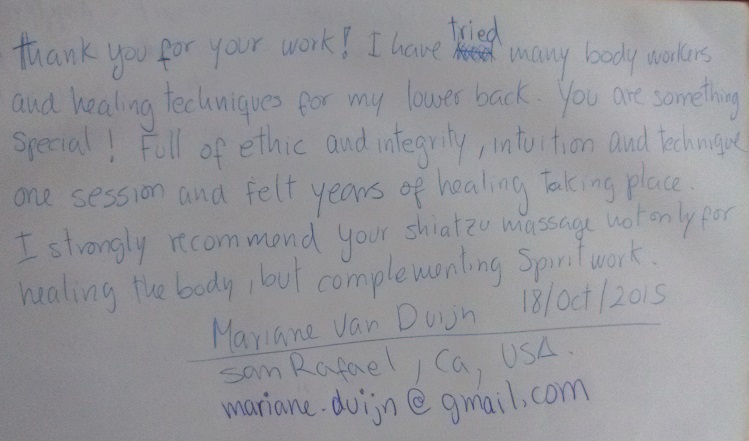 thank you for your work! I have tried many body workers
and healing techniques for my lower back. You are something
special! Full of ethic and integrity, intuition and technique
one session and felt years of healing taking place.
I strongly recommend your shiatzu massage not only for
healing the body, but complementing Spirit work.
Mariane Van Duijn 18/Oct/2015
San Rafael, Ca, USA.
mariane.duijn@gmail.com